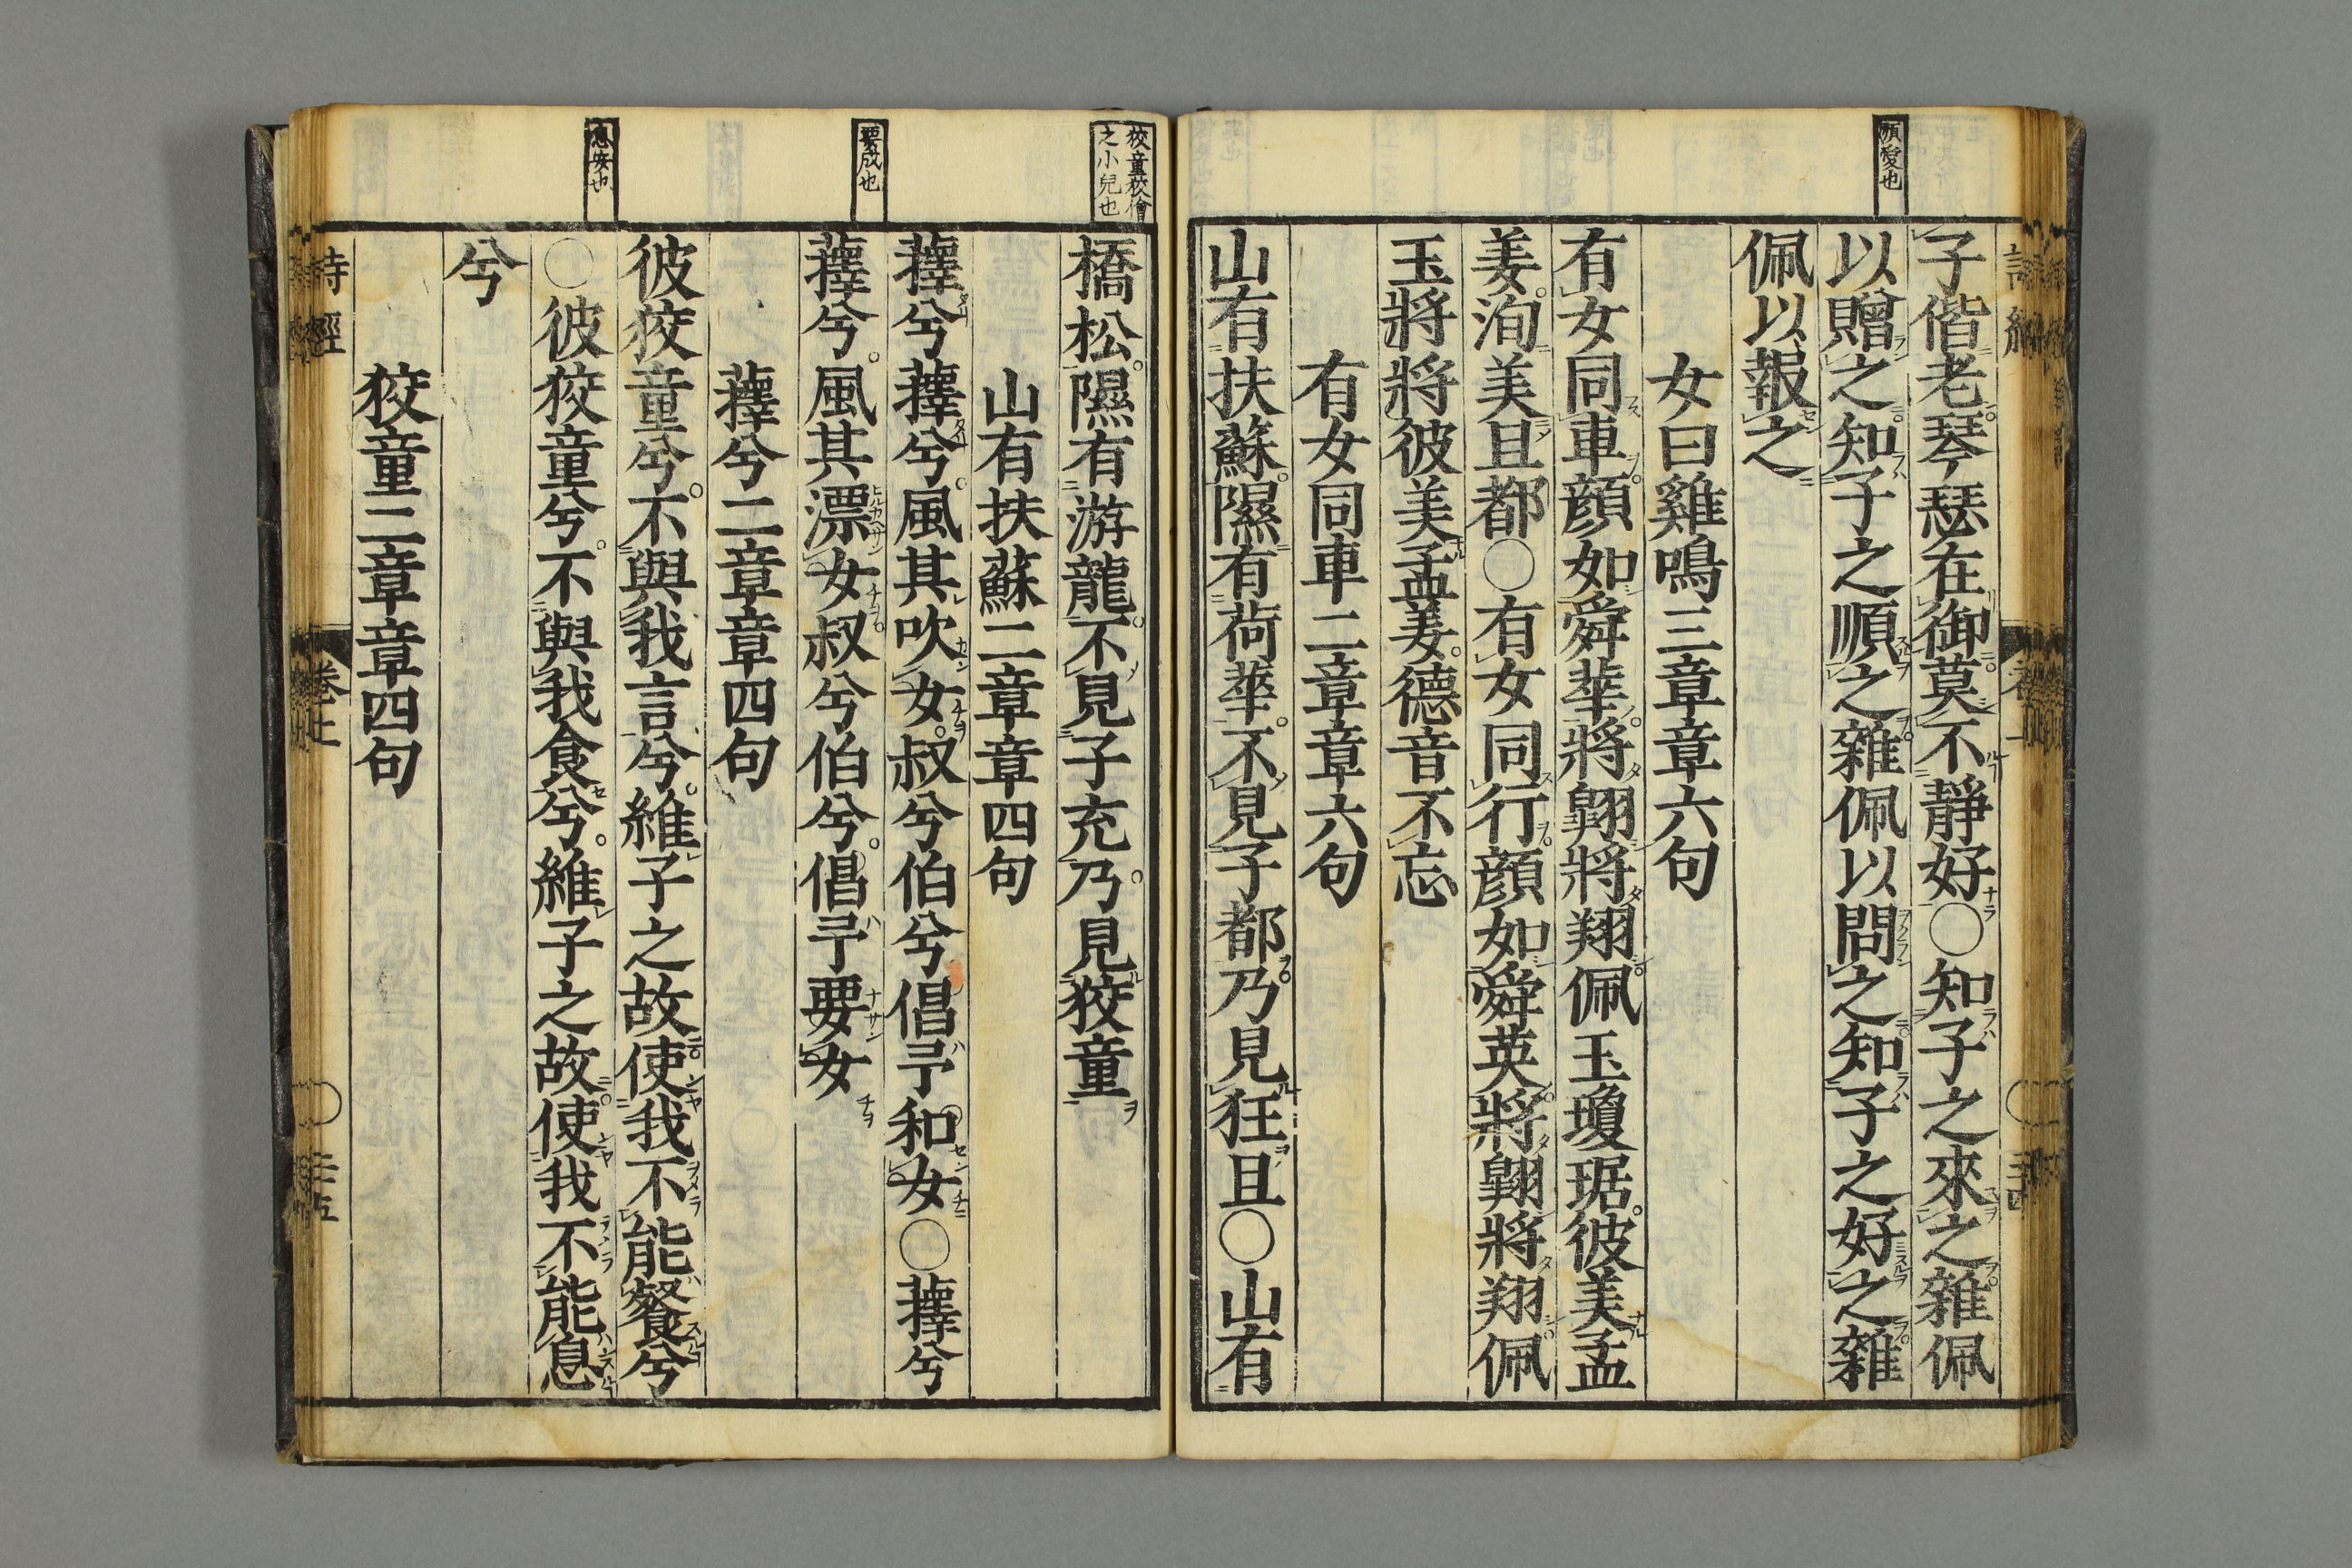 順愛也
子偕老琴瑟在御莫不靜好○知子之來之雜佩
以贈之知子之順之雜佩以問之知子之好之雜
佩以報之
女曰雞鳴三章章六句
有女同車顔如舜華將翺將翔佩玉瓊琚彼美孟
姜洵美且都○有女同行顔如舜英將翺將翔佩
玉將將彼美孟姜德音不忘
有女同車二章章六句
山有扶蘇隰有荷華不見子都乃見狂且○山有
狡童狡獪
之小兒也
橋松隰有游龍不見子充乃見狡童
山有扶蘇二章章四句
蘀兮蘀兮風其吹女叔兮伯兮倡予和女○蘀兮
要成也
蘀兮風其漂女叔兮伯兮倡予要女
蘀兮二章章四句
彼狡童兮不與我言兮維子之故使我不能餐兮
息安也
○彼狡童兮不與我食兮維子之故使我不能息
兮
狡童二章章四句
詩經 卷上 ○ 三十五